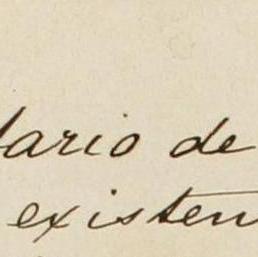 lario de
existen